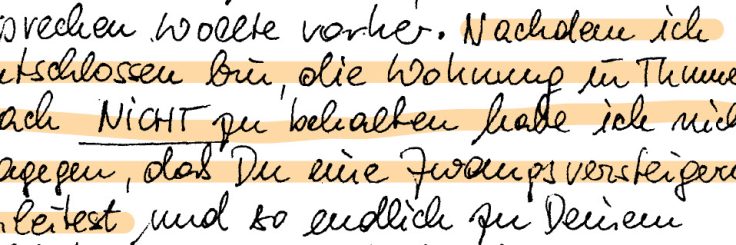 sprechen wollte vorher. Nachdem ich
ntschlossen bin, die Wohnung in Thune
ach NICHT zu behalten habe ich nich
agegen, daß Du eine Zwangsversteigeru
nleitest und so endlich zu Deinem